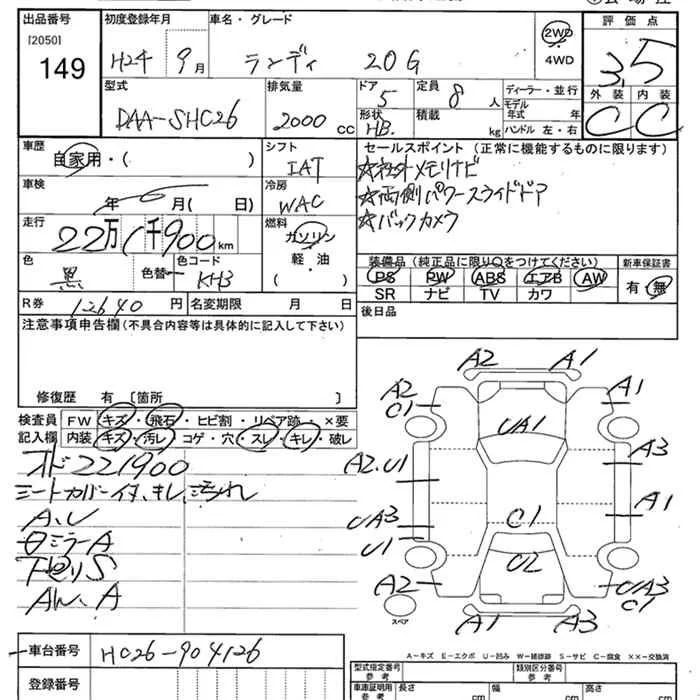 出品番号
[2050]
149
初度登録年月
H24 9月
車名・グレード
ランディ 20G
2WD
4WD
評価点
3.5
外装 内装
C C
型式
DAA-SHC26
排気量
2000 CC
ドア
5
形状
HB.
定員
8人
積載
kg
ディーラー・並行
モデル
年式 年
ハンドル 左・右
車歴
自家用・( )
シフト
IAT
セールスポイント(正常に機能するものに限ります)
メモリナビ
☆両側パワースライドドア
☆バックカメラ
車検
年 6月( 日)
冷房
WAC
走行
22万1千900km
燃料
ガソリン
軽・油
( )
色
黒
色替
色コード
KH3
装備品(純正品に限り○をつけてください)
PS PW ABS エアB AW
SR ナビ TV カワ
新車保証書
有・無
R券 12640円
名変期限 月 日
後日品
注意事項申告欄(不具合内容等は具体的に記入して下さい)
修復歴 有[箇所 ]
検査員
記入欄
FW キズ・飛石・ヒビ割・リペア跡・×要
内装 キズ・汚レ・コゲ・穴・スレ・キレ・破レ
オド221900
シートカバーイタ、キレ、汚れ
A、U
ロミラーA
下廻りS
AW、A
A2 A1
A2 C1
A1
UA1
A2.U1
A3
A1
UA3
U1
C1
U2
A2
UA3
C1
スペア
A1 A3
A-キズ E-エクボ U-凹み W-補修跡 S-サビ C-腐食 ××-交換済
車台番号
HC26-904126
登録番号
型式指定番号
参考
類別区分番号
参考
車庫証明用
参考
長さ cm
幅 cm
高さ cm